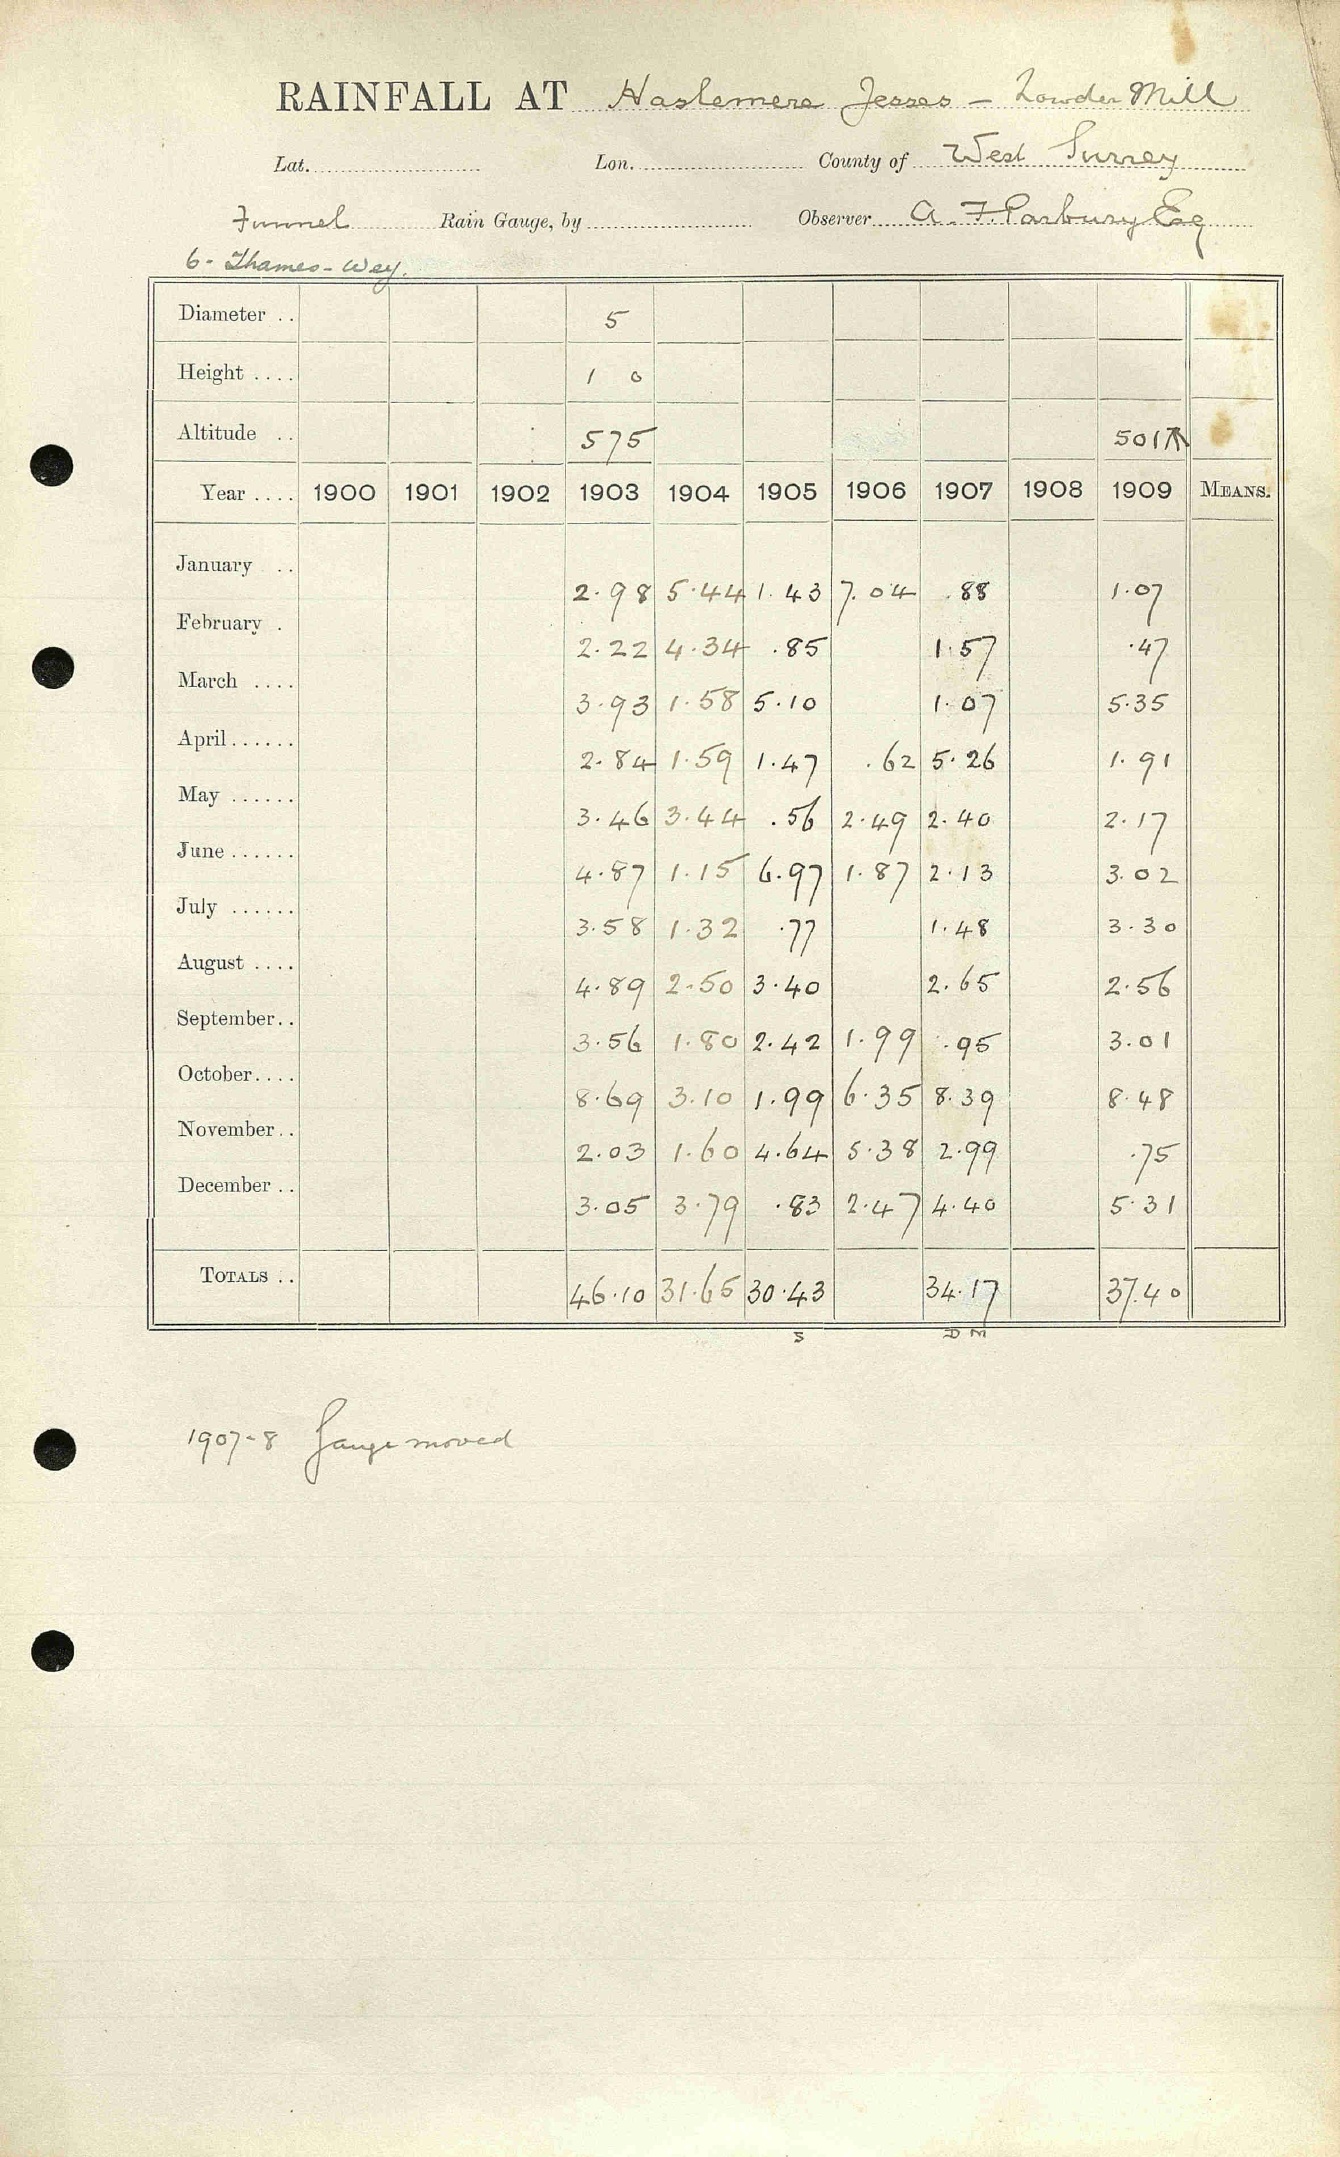 RAINFALL AT Haslemere Jesses - Lowder Mill
Lat. Lon. County of West Surrey
Funnel Rain Gauge, by Observer A. F. Parbury Esq
6 - Thames - Wey.
Diameter .. 5
Height .... 1 0
Altitude .. 575 501
Year .... 1900 1901 1902 1903 1904 1905 1906 1907 1908 1909 MEANS.
January .. 2.98 5.44 1.43 7.04 .88 1.07
February . 2.22 4.34 .85 1.57 .47
March .... 3.93 1.58 5.10 1.07 5.35
April...... 2.84 1.59 1.47 .62 5.26 1.91
May ...... 3.46 3.44 .56 2.49 2.40 2.17
June...... 4.87 1.15 6.97 1.87 2.13 3.02
July ...... 3.58 1.32 .77 1.48 3.30
August .... 4.89 2.50 3.40 2.65 2.56
September.. 3.56 1.80 2.42 1.99 .95 3.01
October.... 8.69 3.10 1.99 6.35 8.39 8.48
November.. 2.03 1.60 4.64 5.38 2.99 .75
December .. 3.05 3.79 .83 2.47 4.40 5.31
TOTALS .. 46.10 31.65 30.43 34.17 37.40
S D M
1907-8 Gauge moved